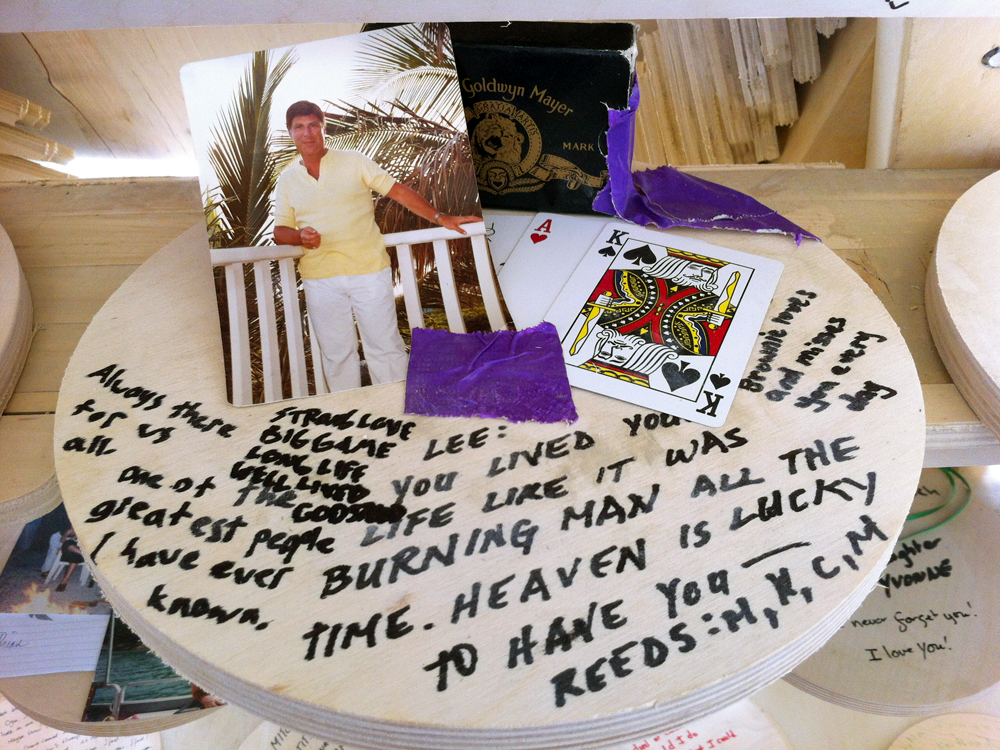 Goldwyn Mayer
MARK
A
K
K
Always there
for us
all
one of the
greatest people
I have ever
known.
STRONG LOVE
BIG GAME
LONG LIFE
WELL LIVED
LEE:
YOU LIVED YOUR
LIFE LIKE IT WAS
BURNING MAN ALL THE
TIME. HEAVEN IS LUCKY
TO HAVE YOU —
REEDS: M, K, C, M
Brownie loves
and misses
you every
day
YVONNE
never forget you!
I love you!